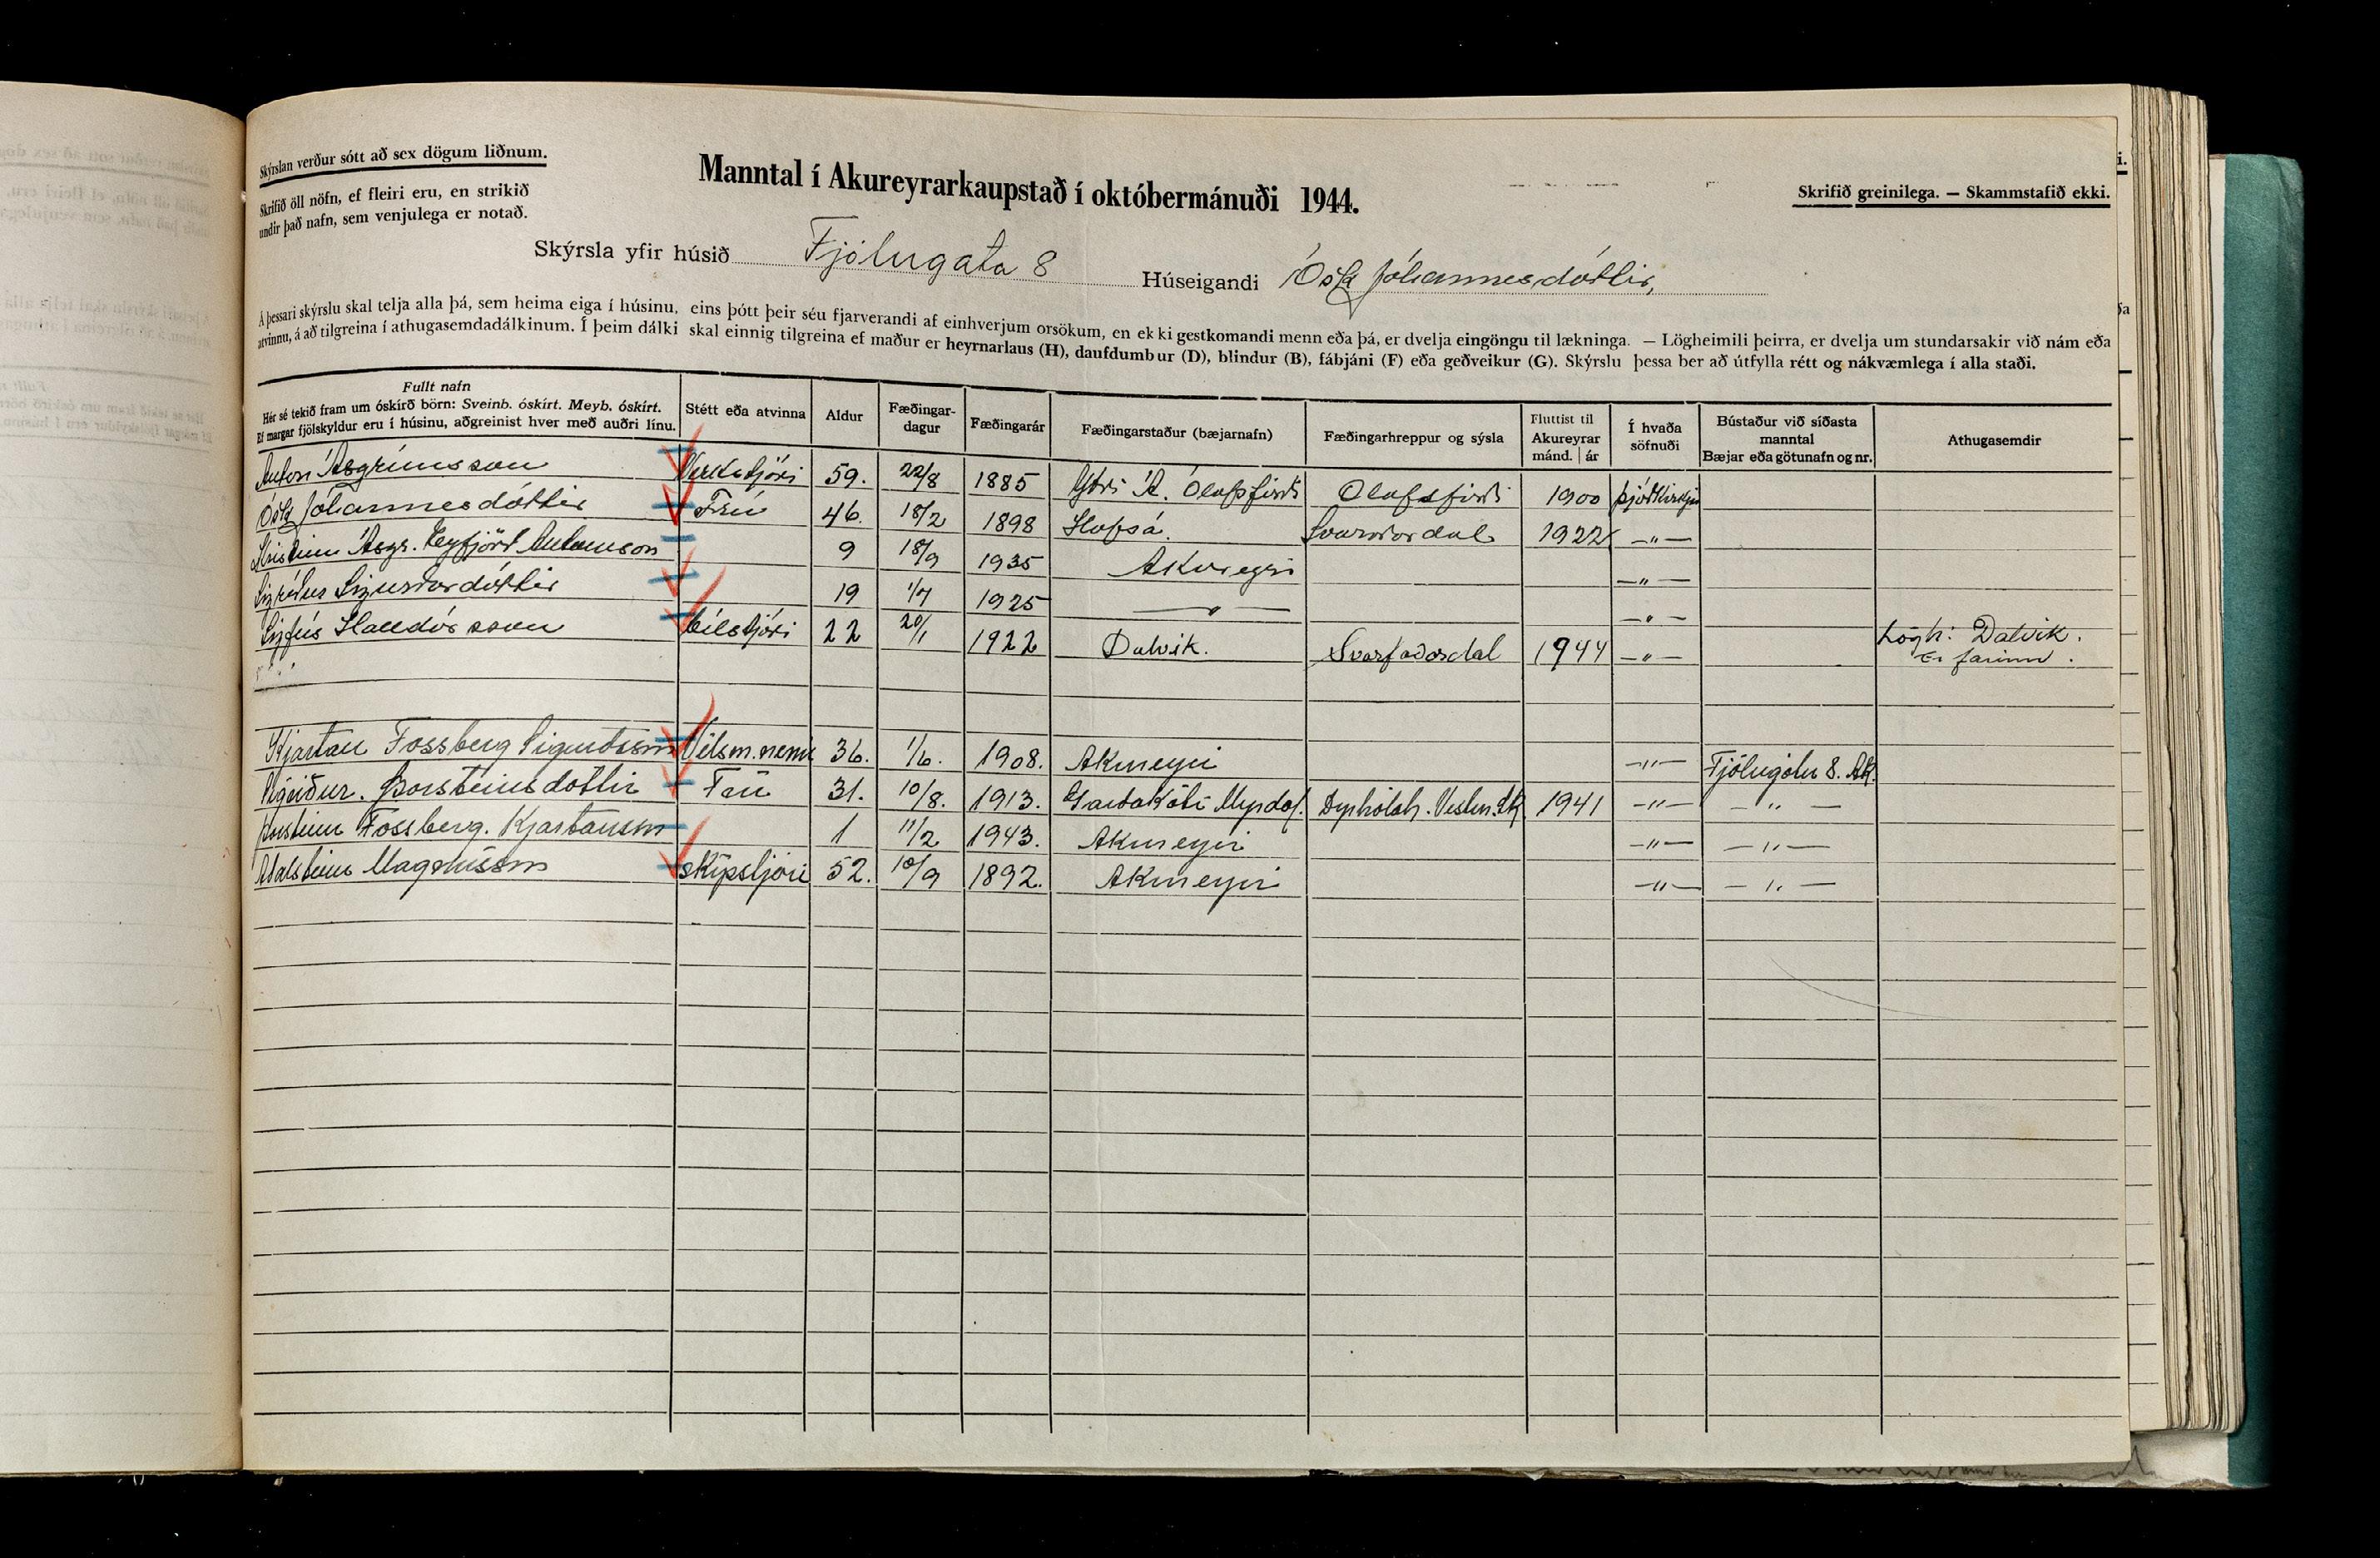 Skýrslan verður sótt að sex dögum liðnum.
Skrifið öll nöfn, ef fleiri eru, en strikið
undir það nafn, sem venjulega er notað.
Manntal í Akureyrarkaupstað í októbermánuði 1944.
Skrifið greinilega. — Skammstafið ekki.
Skýrsla yfir húsið Fjólugata 8 Húseigandi Ósk Jóhannesdóttir,
Á þessari skýrslu skal telja alla þá, sem heima eiga í húsinu, eins þótt þeir séu fjarverandi af einhverjum orsökum, en ekki gestkomandi menn eða þá, er dvelja eingöngu til lækninga. — Lögheimili þeirra, er dvelja um stundarsakir við nám eða
atvinnu, á að tilgreina í athugasemdadálkinum. Í þeim dálki skal einnig tilgreina ef maður er heyrnarlaus (H), daufdumbur (D), blindur (B), fábjáni (F) eða geðveikur (G). Skýrslu þessa ber að útfylla rétt og nákvæmlega í alla staði.
Fullt nafn
Hér sé tekið fram um óskírð börn: Sveinb. óskírt. Meyb. óskírt.
Ef margar fjölskyldur eru í húsinu, aðgreinist hver með auðri línu.
Stétt eða atvinna
Aldur
Fæðingar-
dagur
Fæðingarár
Fæðingarstaður (bæjarnafn)
Fæðingarhreppur og sýsla
Fluttist til
Akureyrar
mánd. | ár
Í hvaða
söfnuði
Bústaður við síðasta
manntal
Bæjar eða götunafn og nr.
Athugasemdir
Anton Ásgrímsson Verkstjóri 59. 22/8 1885 Ytri Á. Ólafsfirði Ólafsfirði 1900 þjóðkirkju
Ósk Jóhannesdóttir Frú 46. 18/2 1898 Hofsá. Svarvardal 1922 —"—
Kristinn Ásgr. Eyfjörð Antonsson 9 18/9 1935 Akureyri —"—
Sigríður Sigurðardóttir 19 1/7 1925 —"— —"—
Sigfús Halldórsson bílstjóri 22 20/1 1922 Dalvík. Svarfaðardal 1944 —"— Lögh: Dalvík.
Er farinn.
Kjartan Fossberg Sigurðsson Vélsm.nemi 36. 1/6. 1908. Akureyri —"— Fjólugötu 8. Ak.
Sigríður. Þorsteinsdóttir Frú 31. 10/8. 1913. Garðakoti Mýrdal. Dyrhólah. Vestur.Sk. 1941 —"— —"—
Þorsteinn Fossberg. Kjartansson 1 11/2 1943. Akureyri —"— —"—
Aðalsteinn Magnússon skipstjóri 52. 10/9 1892. Akureyri —"— —"—